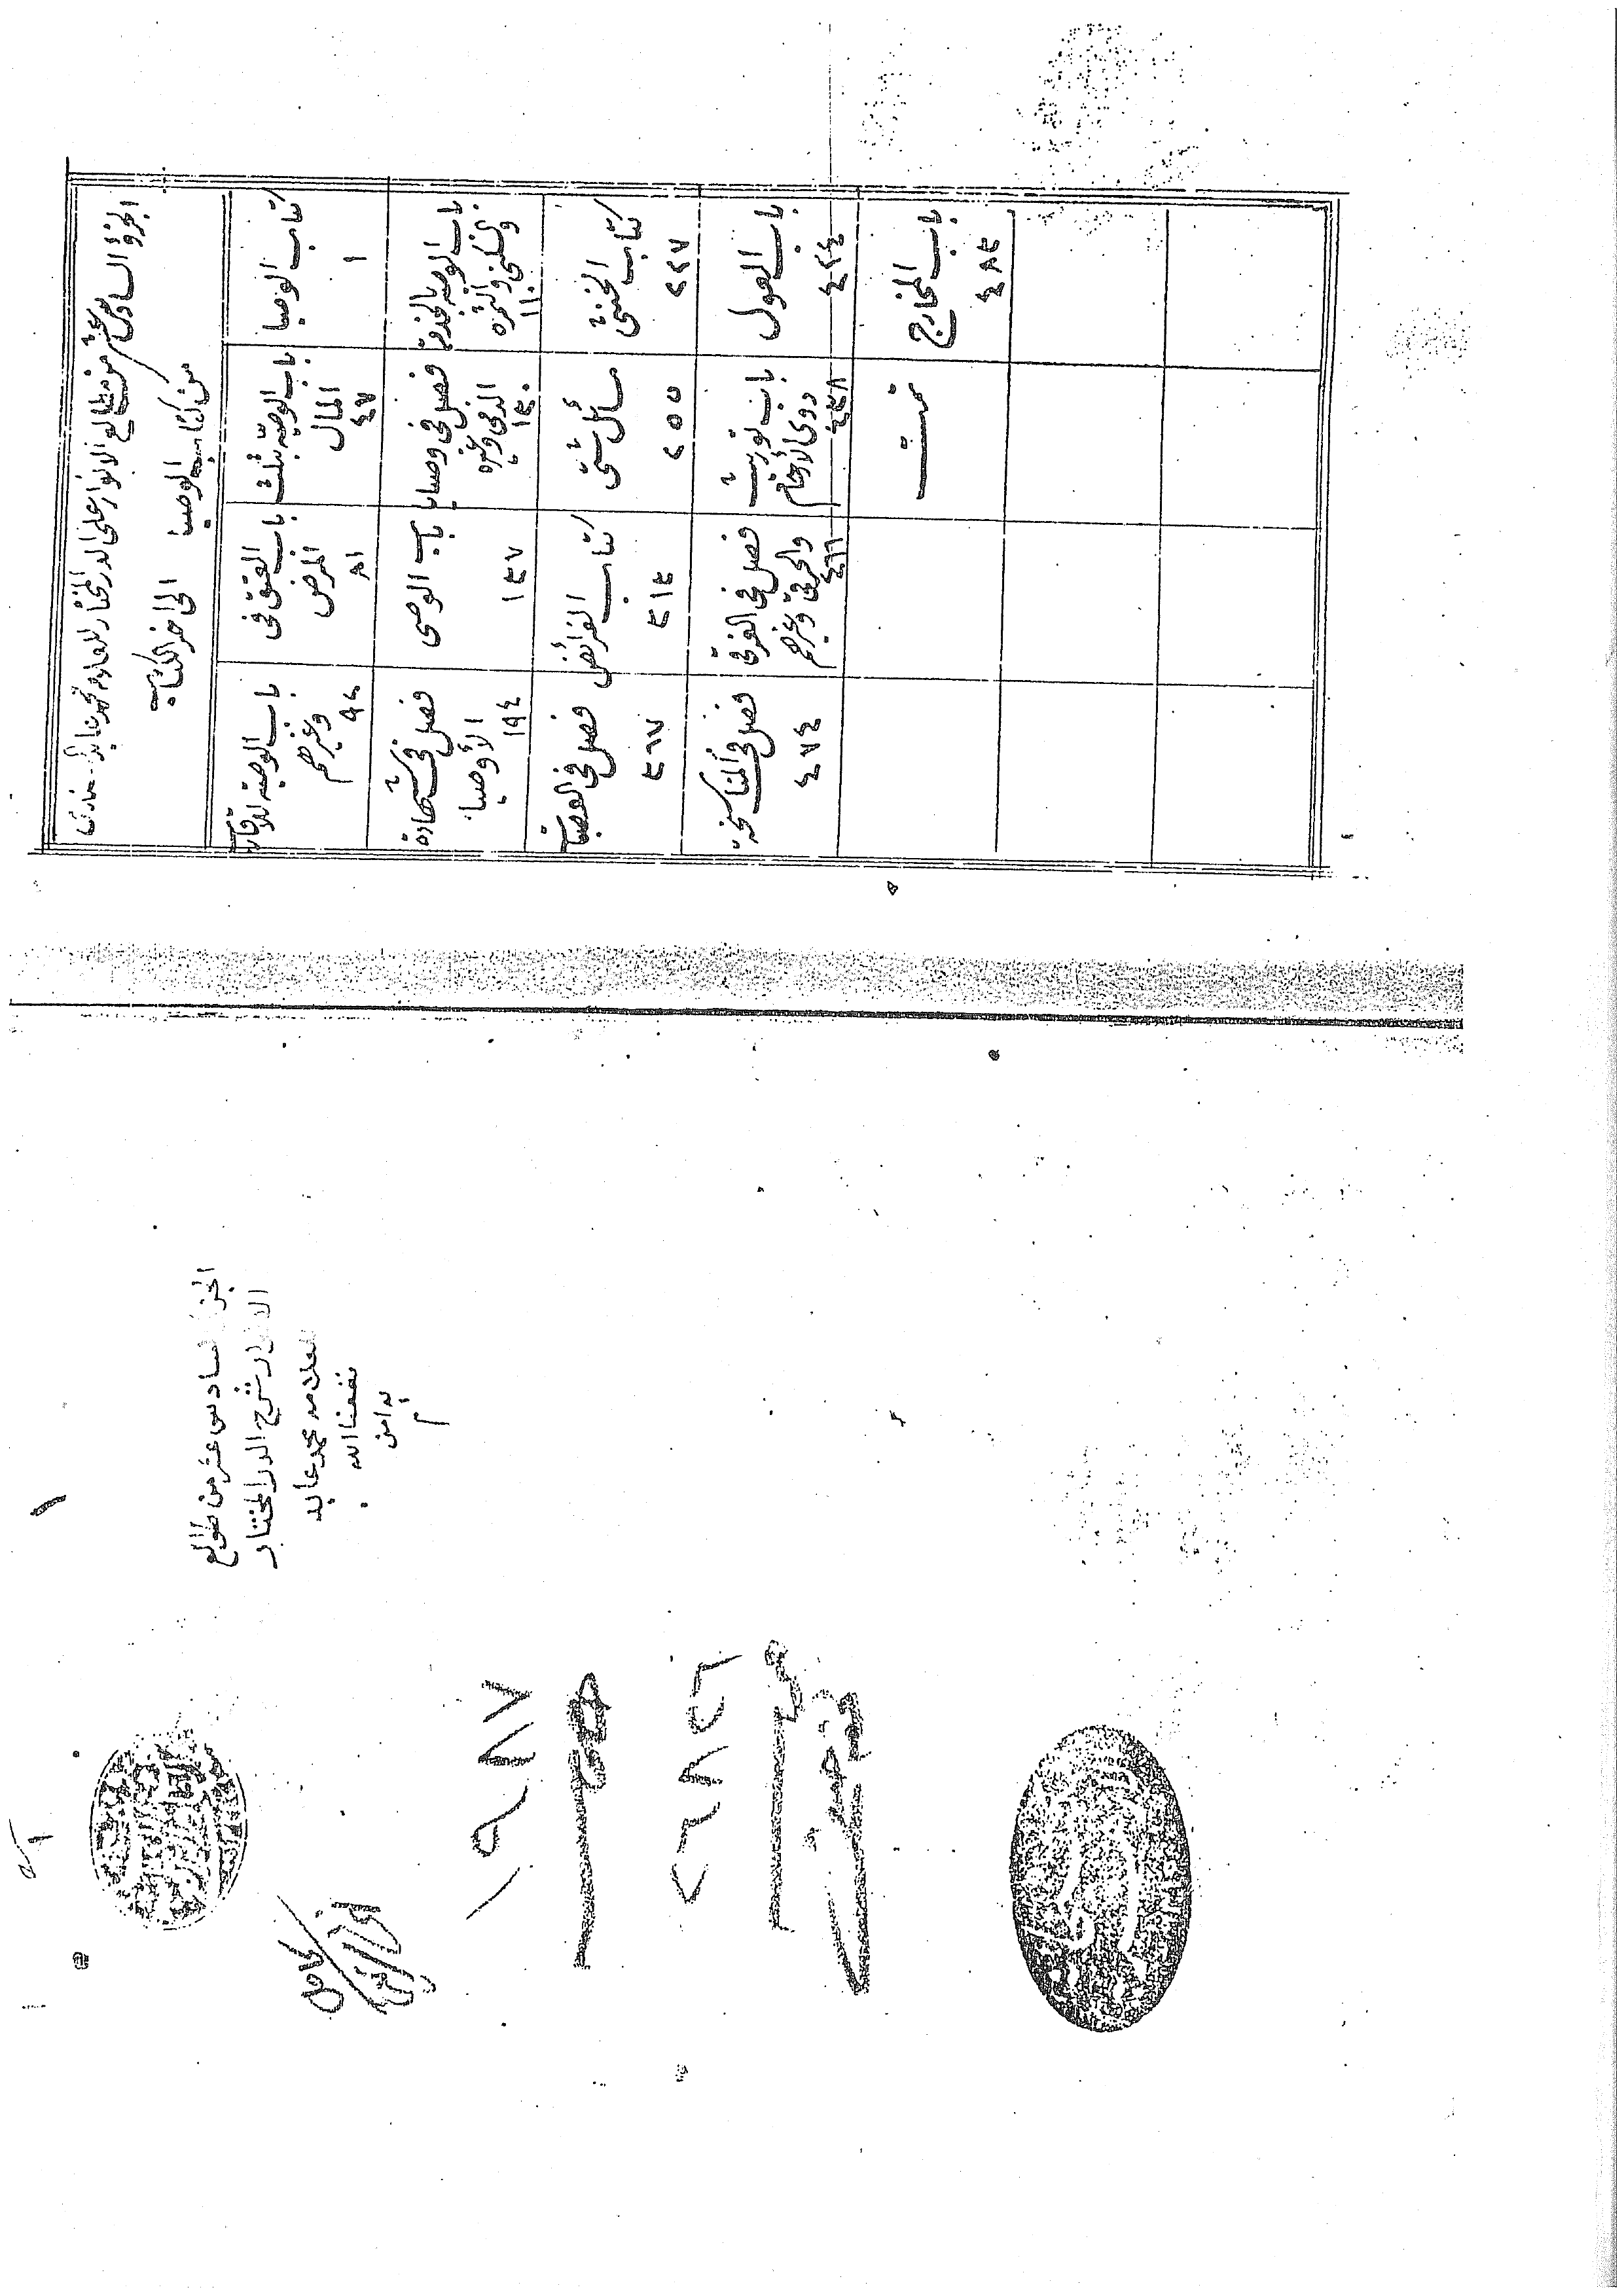 الجزؤ السادس عشر من طوالع الانوار على الدر المختار للعلامه محمد عابد
من كتاب الوصيا الى اخر الكتاب
كتاب الوصيا
١
باب الوصيه بثلث
المال
٤٧
باب العتق فى
المرض
٨١
باب الوصيه للأقارب
وغيرهم
٩٤
باب الوصيه بالخدمة
والسكنى والثمره
١١٠
فصل فى وصايا
الذمى وغيره
١٣٠
باب الوصى
١٣٧
فصل فى شهادة
الأوصيا
١٩٤
كتاب
الخنثى
٢٢٧
مسائل شتى
٢٥٥
كتاب الفرائض
٣١٣
فصل في العصبات
٣٦٧
باب العول
٤٢٤
باب توريث
ذوى الأرحام
٤٣٨
فصل فى الغرقى
والحرقى وغيرهم
٤٦٦
فصل فى المناسخة
٤٧٤
باب المخارج
٤٨٣
تمت
الجزء السادس عشر من طوالع
الانوار شرح الدر المختار
للعلامه محمد عابد
نفعنا الله
به امين
م
١٩٨٧
٢٦٨٥٦